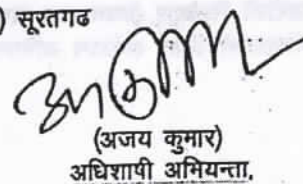 ) सूरतगढ
(अजय कुमार)
अधिशाषी अभियन्ता,